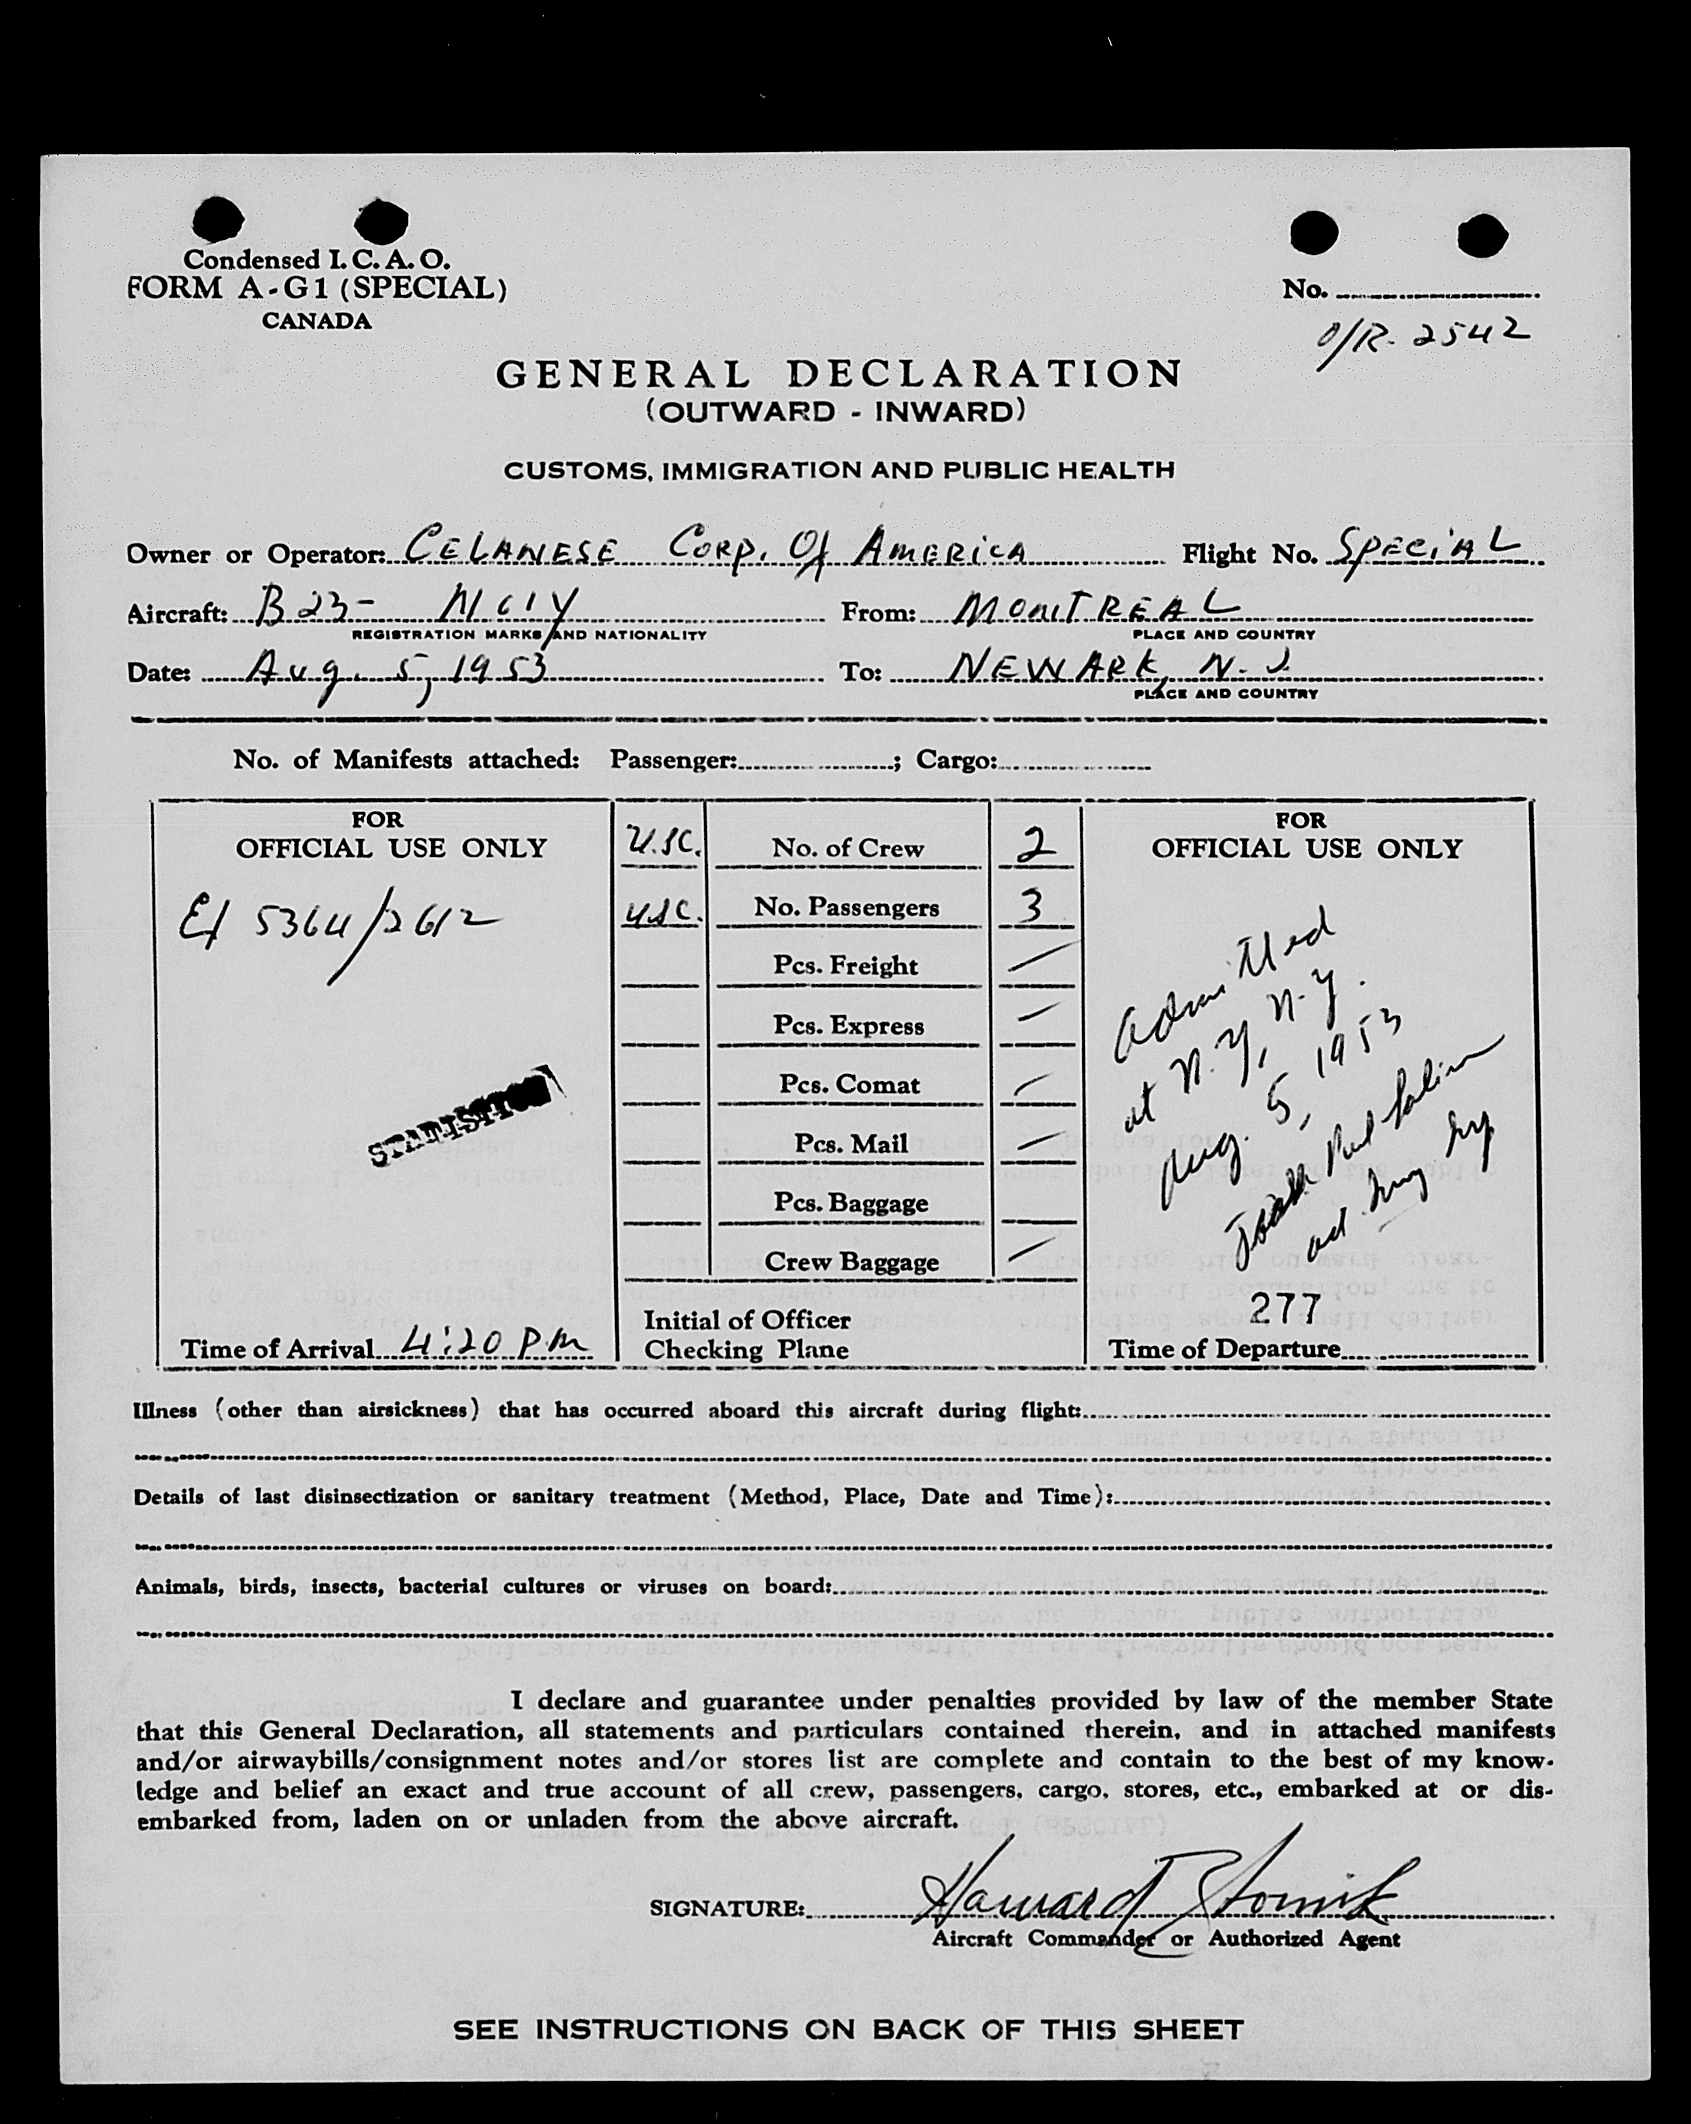 Condensed I.C.A.O.
FORM A-G1 (SPECIAL)
CANADA
No.
O/R. 2542
GENERAL DECLARATION
(OUTWARD - INWARD)
CUSTOMS, IMMIGRATION AND PUBLIC HEALTH
Owner or Operator: CELANESE CORP. Of AMERICA Flight No. SPECIAL
Aircraft: B23- N61Y From: MONTREAL
REGISTRATION MARKS AND NATIONALITY PLACE AND COUNTRY
Date: Aug. 5, 1953 To: NEWARK, N.J.
PLACE AND COUNTRY
No. of Manifests attached: Passenger: ; Cargo:
FOR
OFFICIAL USE ONLY
5364/2612
Time of Arrival 4:20 P.M
U.S.C. No. of Crew 2
U.S.C. No. Passengers 3
Pcs. Freight
Pcs. Express
Pcs. Comat
Pcs. Mail
Pcs. Baggage
Crew Baggage
Initial of Officer
Checking Plane
FOR
OFFICIAL USE ONLY
Admitted
at N.Y, N.Y.
Aug. 5, 1953
277
Time of Departure
Illness (other than airsickness) that has occurred aboard this aircraft during flight:
Details of last disinsectization or sanitary treatment (Method, Place, Date and Time):
Animals, birds, insects, bacterial cultures or viruses on board:
I declare and guarantee under penalties provided by law of the member State
that this General Declaration, all statements and particulars contained therein, and in attached manifests
and/or airwaybills/consignment notes and/or stores list are complete and contain to the best of my know-
ledge and belief an exact and true account of all crew, passengers, cargo, stores, etc., embarked at or dis-
embarked from, laden on or unladen from the above aircraft.
SIGNATURE: Howard
Aircraft Commander or Authorized Agent
SEE INSTRUCTIONS ON BACK OF THIS SHEET